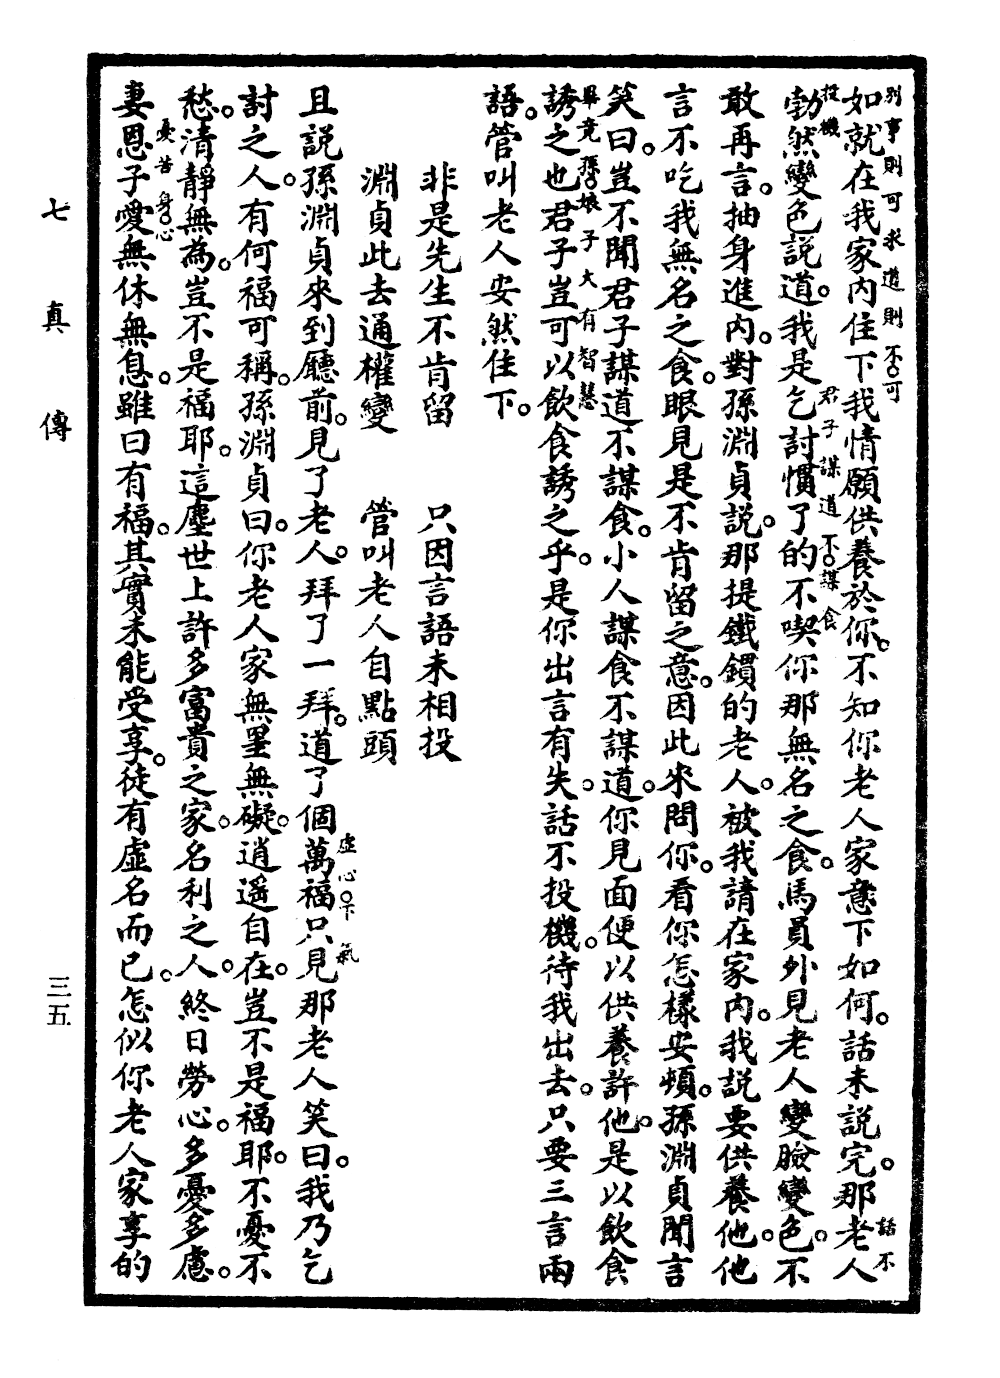 別事則可求道則不可
如就在我家內住下我情願供養於你。不知你老人家意下如何。話未說完。那老人
話不投機
君子謀道不謀食
勃然變色說道。我是乞討慣了的不喫你那無名之食。馬員外見老人變臉變色。不
敢再言。抽身進內。對孫淵貞說。那提鐵鑵的老人。被我請在家內。我說要供養他。他
言不吃我無名之食。眼見是不肯留之意。因此來問你。看你怎樣安頓。孫淵貞聞言
笑曰。豈不聞君子謀道不謀食。小人謀食不謀道。你見面便以供養許他。是以飲食
畢竟孫娘子大有智慧
誘之也君子豈可以飲食誘之乎。是你出言有失。話不投機。待我出去。只要三言兩
語。管叫老人安然住下。
非是先生不肯留　只因言語未相投
淵貞此去通權變　管叫老人自點頭
且說孫淵貞來到廳前。見了老人。拜了一拜。道了個萬福只見那老人笑曰。我乃乞
虛心下氣
討之人。有何福可稱。孫淵貞曰。你老人家無罣無礙。逍遙自在。豈不是福耶。不憂不
愁。清靜無為。豈不是福耶。這塵世上許多富貴之家。名利之人。終日勞心。多憂多慮。
憂苦身心
妻恩子愛無休無息。雖曰有福。其實未能受享。徒有虛名而已。怎似你老人家享的
七真傳
三五